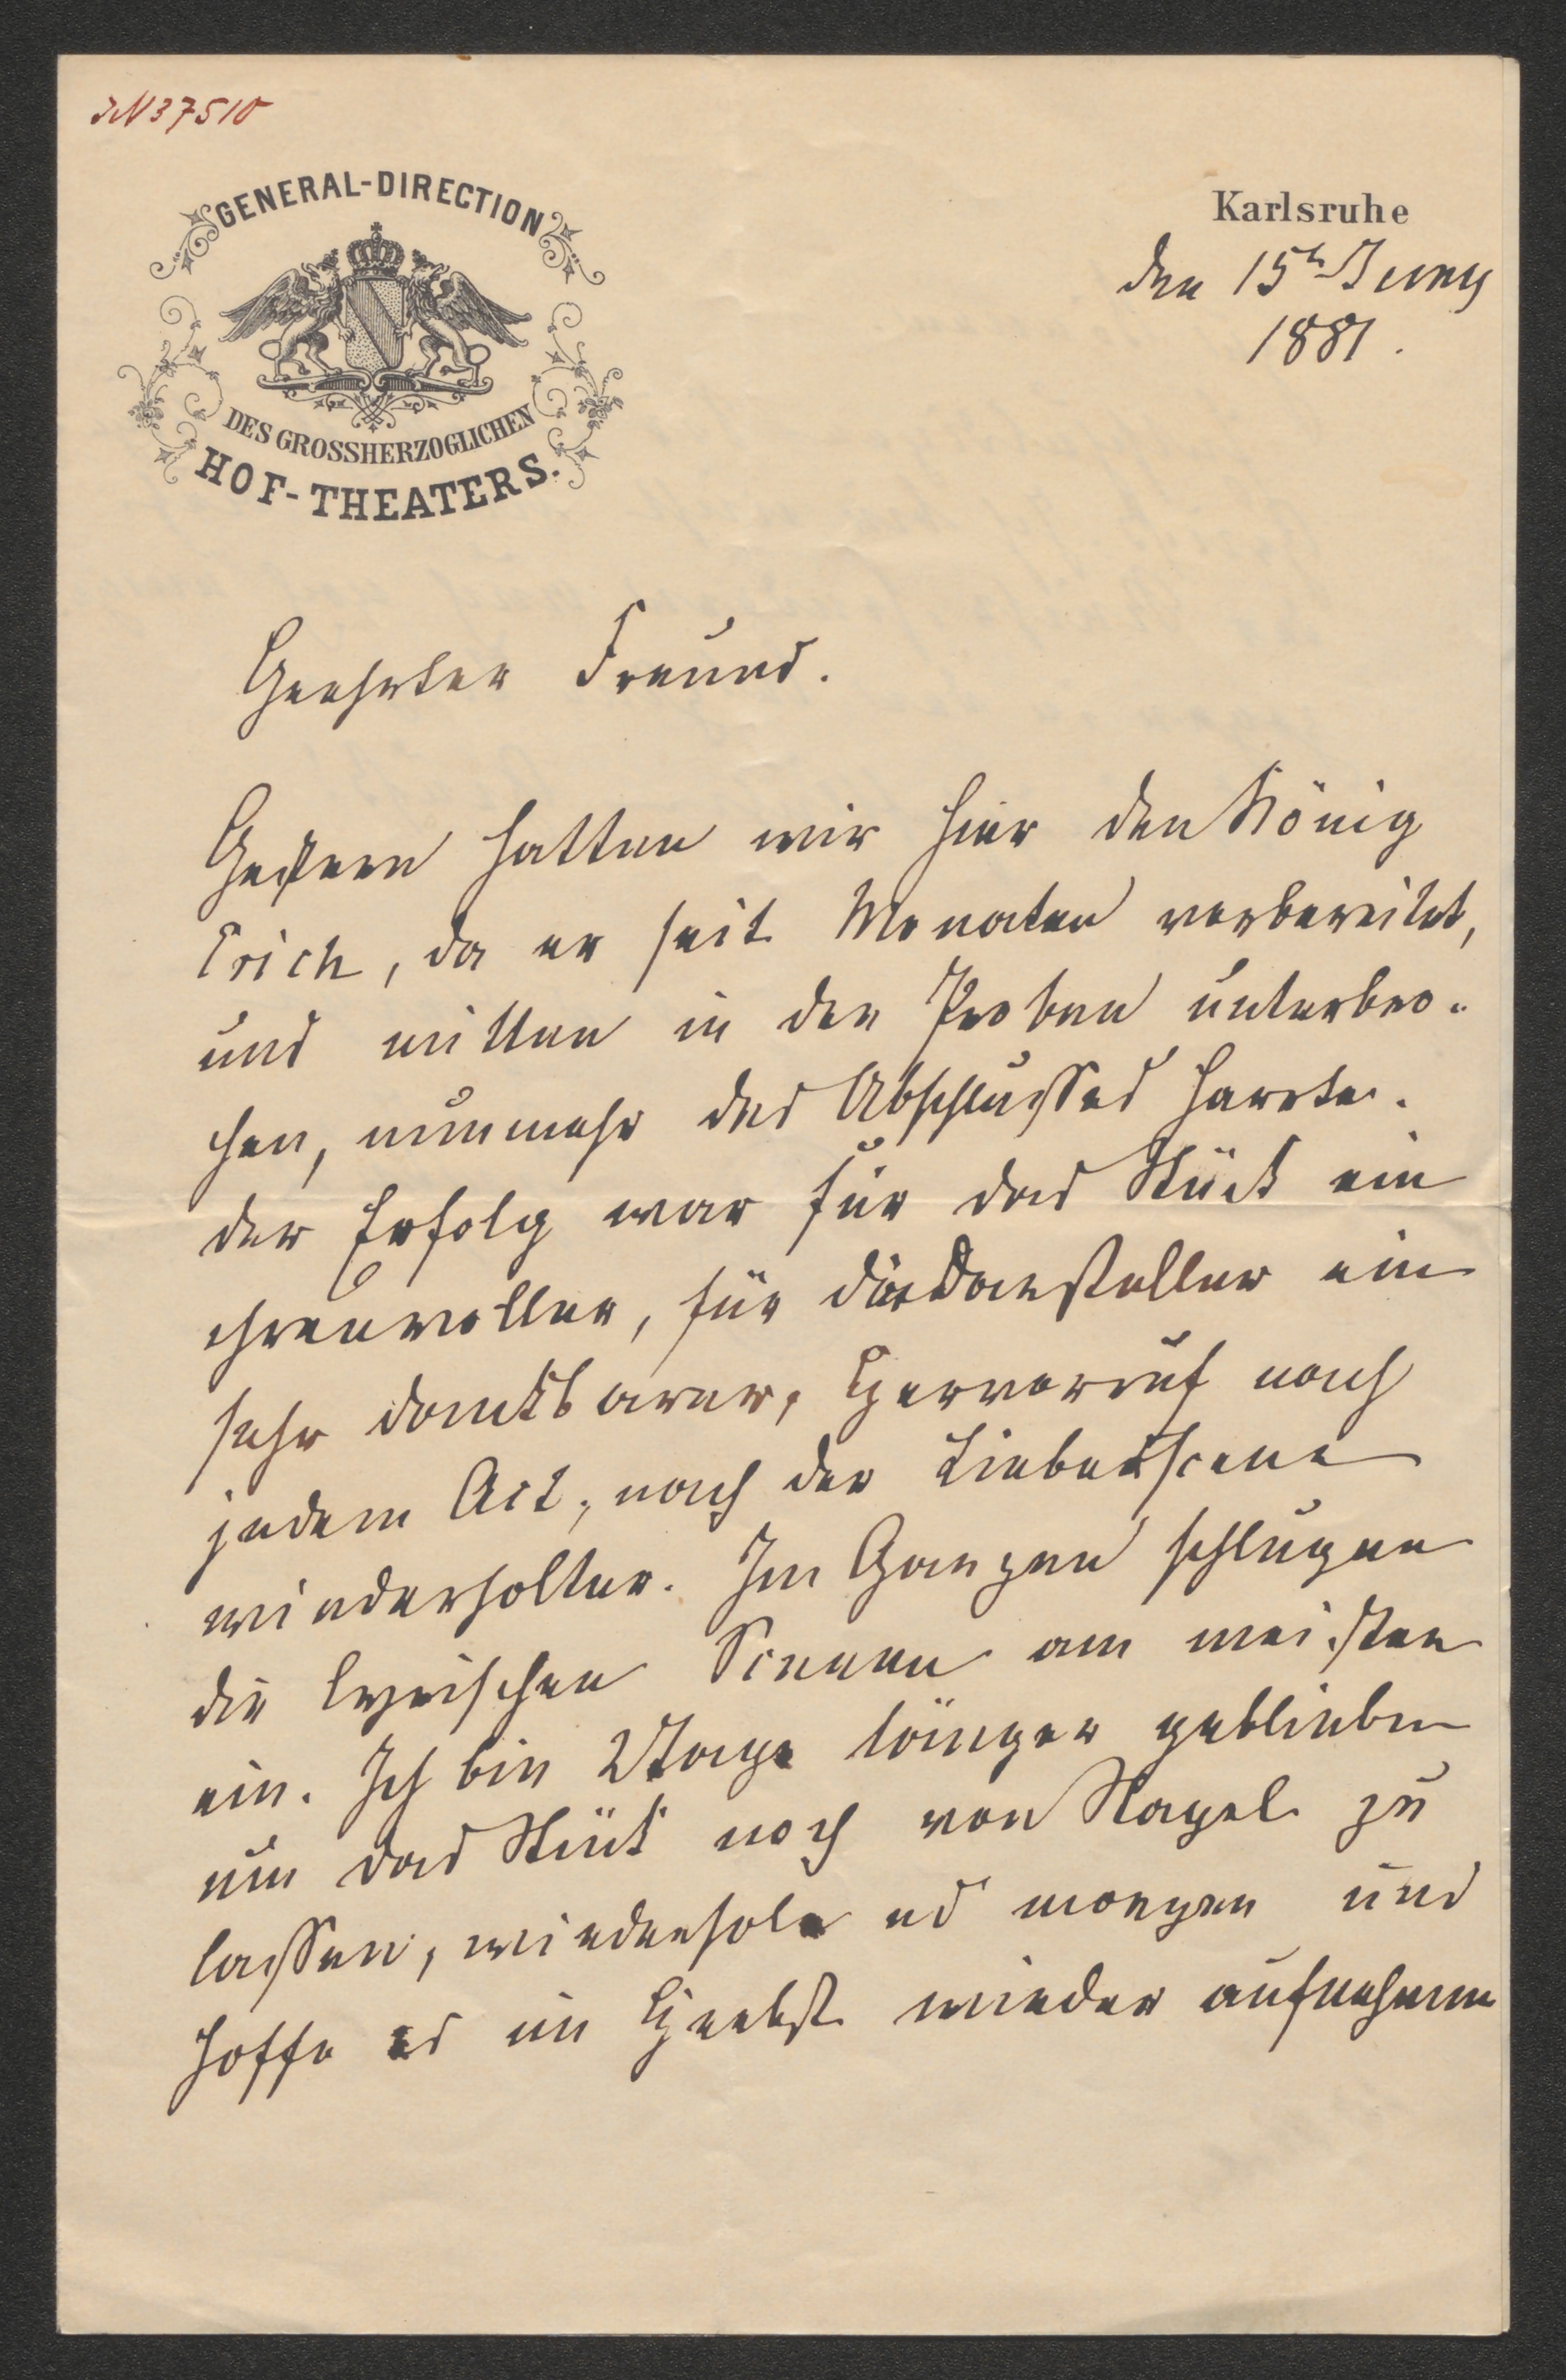 IN 37510
GENERAL-DIRECTION
DES GROSSHERZOGLICHEN
HOF-THEATERS.
Karlsruhe
den 15t Juny
1881.
Geehrter Freund.
Gestern hatten wir hier den König
Erich, da er seit Monaten vorbereitet,
und mitten in den Proben unterbro-
chen, nunmehr des Abschlusses harrte.
der Erfolg war für das Stück ein
ehrenvoller, für die Darsteller ein
sehr dankbarer, Hervorruf nach
jedem Act, nach der Liebesscene
wiederholter. Im Ganzen schlugen
die lyrischen Scenen am meisten
ein. Ich bin 2 Tage länger geblieben
um das Stück noch von Stapel zu
lassen, wiederhole es morgen und
hoffe es im Herbst wieder aufnehmen